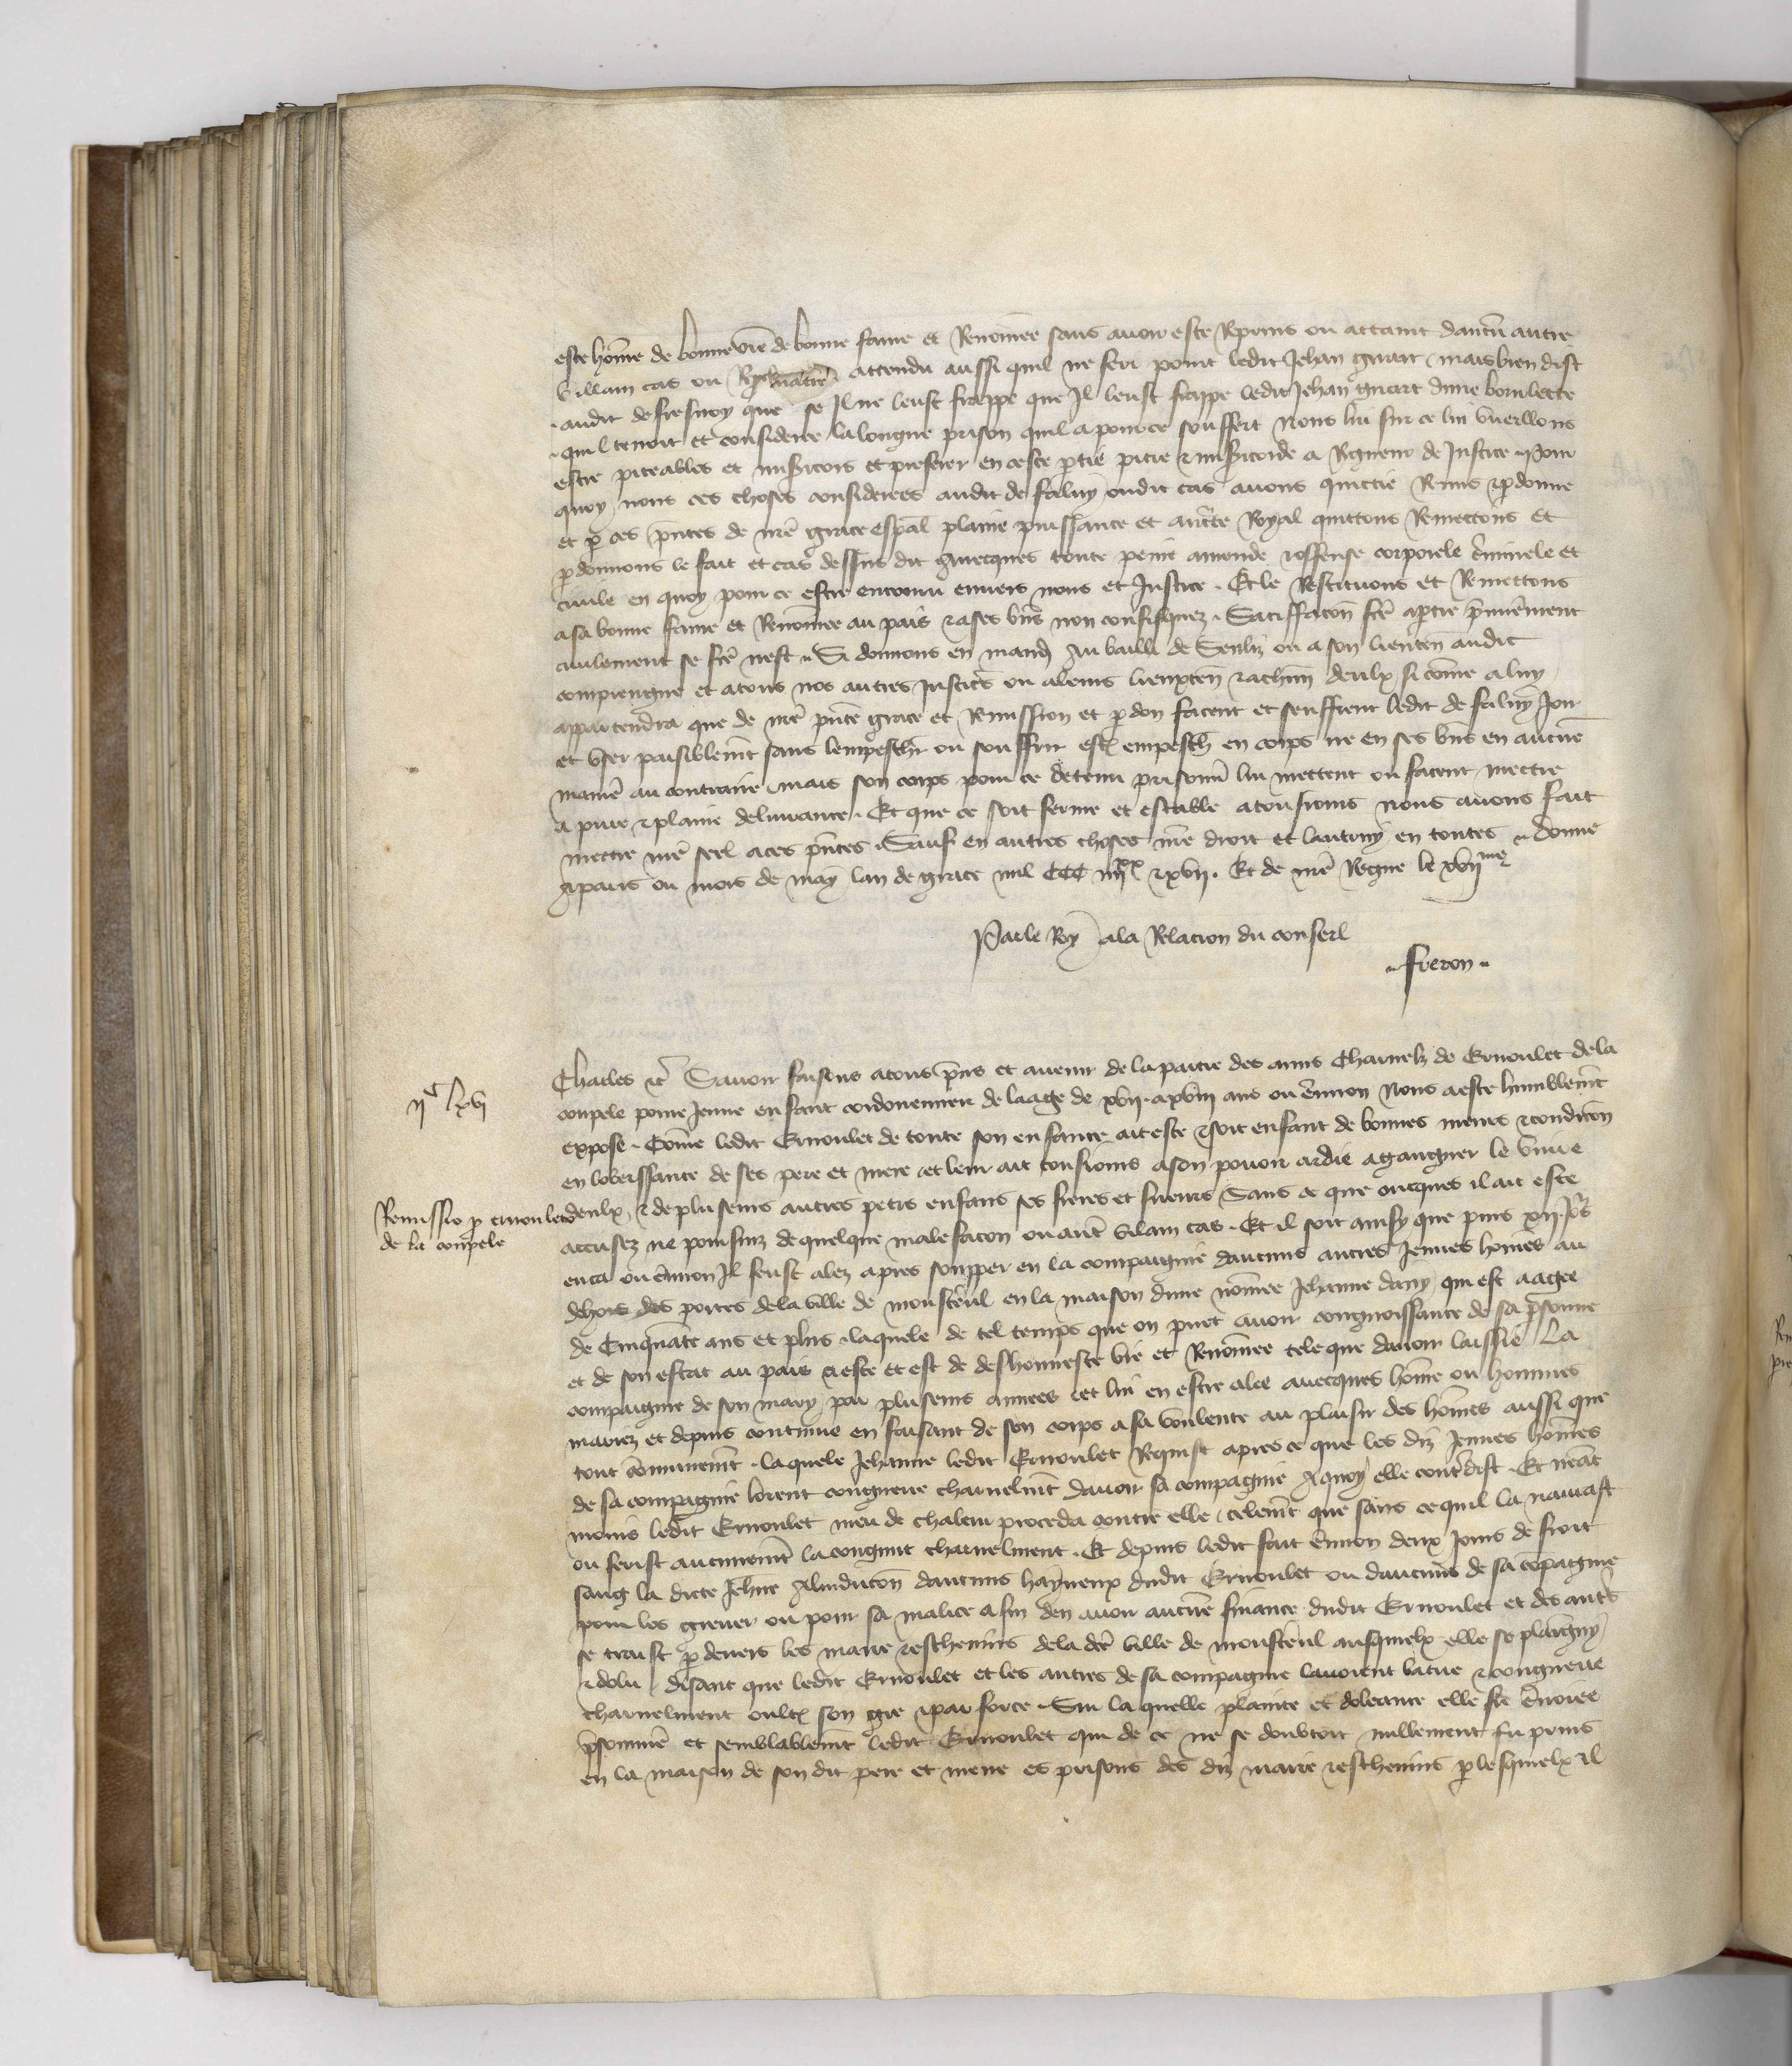 este home de bonne vie de bonne fame et Renomee sans auoir este Reprins ou attaint daucun autre
villain cas ou attendu aussi quil ne feri point ledit Jehan guart mais bien dist
audit de fresnoy que se Il ne leust frappe que Il leust frappe ledit Jehan guart dune
quil tenoit et considere la longue prison quil a pour ce souffert nous lui sur ce lui vueillons
estre piteables et misericors et preferer en ceste ptie pitie & misericorde a Rigueur de Justice pour
quoy nous ces choses considerees audit de faluy oudit cas auons quictie Remis & pdonne
et p ces pntes de nre grace espal plaine puissance et aucte Royal quittons Remettons et
pdonnons le fait et cas dessus dit Auecques toute peine amende & offense corporele criminele et
ciuile en quoy pour ce estre encouru enuers nous et Justice . Et le Restituons et Remettons
a sa bonne fame et Renomee au pais & a ses biens non confisquez . Satiffacon fte a ptie premierement
ciuilement se fte nest Si donnons en mand Au bailli de Senliz ou a son lieuten audit
compiengne et a tous nos autres Justic ou a leurs lieuxten & a chun deulx si come a luy
appartendra que de nre pnte grace et Remission et pdon facent et seuffrent ledit de faluy Joir
et vser paisiblemt sans lempeschr ou souffrir est empesch en corps ne en ses biens en aucune
maniere au contraire mais son corps pour ce detenu prisonn lui mettent ou facent mectre
a pure & plaine deliurance . Et que ce soit ferme et estable a tousiours nous auons fait
mettre nre seel a ces pntes . Sauf en autres choses nre droit et lautruy en toutes donne
A paris ou mois de may lan de grace mil CCC iiijxx & xvij . Et de nre Regne le xvijme
Par le Roy a la Relacion du conseil
freron
ijc lxvj
Charles &c Sauoir faisons a tous pns et auenir de la partie des amis Charnelz de Ernoulet de la
coupele poure Jeune enfant cordouennier de laage de xvij . a xviij ans ou enuiron Nous a este humblemt
expose . Come ledit Ernoulet de toute son enfance ait este & soit enfant de bonnes meurs & condicon
en lobeissance de ses pere et mere et leur ait tousiours a son pouoir aidie a gaingner le viure
Remissio p ernouleto
de la coupele
deulx & de pluseurs autres petis enfans ses freres et sueurs Sans ce que oncques il ait este
accusez ne poursuiz de quelque malefacon ou autre vilain cas . Et il soit ainsy que puis xij jours
enca ou enuiron Il feust alez apres soupper en la compaignie daucuns autres Jeunes homes au
dehors des portes de la ville de monstereul en la maison dune nomee Jehanne dany qui est aagee
de Cinquante ans et plus . laquele de tel temps que on puet auoir congnoissance de sa psonne
et de son estat au pais a este et est de deshonneste vie et Renomee tele que dauoir laissie La
compaignie de son mary par pluseurs annees et lui en estre alee auecques home ou hommes
mariez et depuis continue en faisant de son corps a sa voulente au plaisir des homes aussi que
tout comunemt . laquele Jehanne ledit Ernoulet Requist apres ce que les diz Jeunes homes
de sa compaignie lorent congneue charnelmt dauoir sa compaignie A quoy elle contredist . Et neat
moins ledit Ernoulet meu de chaleur proceda contre elle telemt que sans ce quil la naurast
ou ferist aucunemt la congnut charnelment . Et depuis ledit fait enuiron deux Jours de froit
sang la dicte Jehne A linducon daucuns hayneux dudit Ernoulet ou daucuns de sa copaignie
pour les greuer ou pour sa malice afin den auoir aucune finance dudit Ernoulet et des autres
se traist p deuers les maire & escheuins de la dce ville de monstereul ausquelx elle se plaigny
& dolu disant que ledit Ernoulet et les autres de sa compaignie lauoient batue & congneue
charnelment oultre son gre & par force . Sur laquelle plainte et doleance elle fu enuoiee
psonniere et semblablemt ledit Ernoulet qui de ce ne se doubtoit nullement fu prins
en la maison de son dit pere et mene es prisons des diz maire & escheuins p lesquelx il